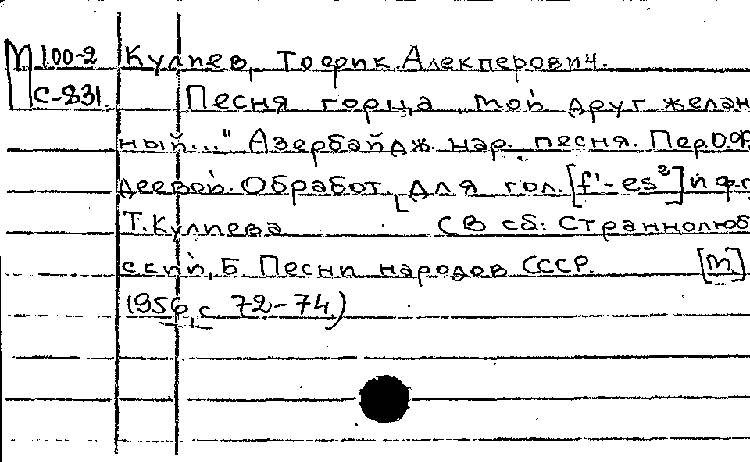 М 100-2 Кулиев, Тофик Алекперович.
С-831. Песня горца "Мой друг желан
ный..." Азербайдж. нар. песня. Пер. О. Фа
деевой. Обработ. для гол. [f'-es²] и ф.п.
Т. Кулиева (В сб: Страннолюб
ский, Б. Песни народов СССР. [М]
1956, с 72-74)